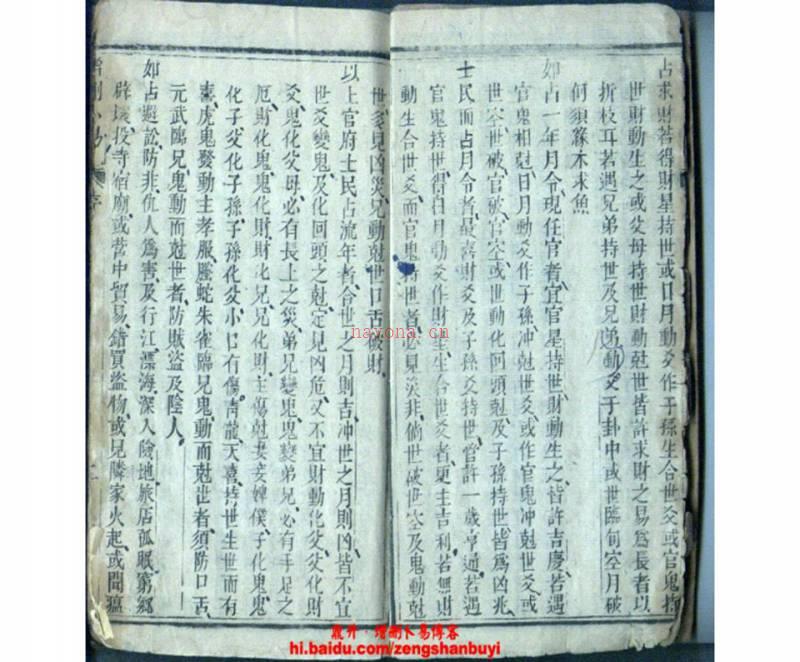 占求財若得財星持世或日月動爻作子孫生合世爻或官鬼持
世財動生之或父母持世財動尅世皆許求財之易爲長者以
折枝耳若遇兄弟持世及兄弟動爻于卦中或世臨旬空月破
何須緣木求魚
如占一年月令現任官者宜官星持世財動生之皆許吉慶若遇
官鬼相尅日月動爻作子孫冲尅世爻或作官鬼冲尅世爻或
世空世破官破官空或世動化回頭尅及子孫持世皆爲凶兆
士民而占月令者最喜財爻及子孫爻持世管許一歲亨通若遇
官鬼持世得日月動爻作財星生合世爻者更主吉利若無財
動生合世爻而官鬼持世者必見災非倘世破世空及鬼動尅
世多見凶災兄動尅世口舌破財
以上官府士民占流年者合世之月則吉冲世之月則凶皆不宜
世爻變鬼及化回頭之尅定見凶危又不宜財動化父父化財
爻鬼化父母必有長上之災弟兄變鬼鬼變弟兄必有手足之
厄財化鬼鬼化財財化兄兄化財主傷尅妻妾婢僕子化鬼鬼
化子父化子孫子孫化父小口有傷青龍天喜持世生世而有
喜虎鬼發動主孝服螣蛇朱雀臨兄鬼動而尅世者須防口舌
元武臨兄鬼動而尅世者防賊盜及陰人
如占避訟防非仇人爲害及行江漂海深入險地旅店孤眠窮鄉
僻壤投寺宿廟或營中貿易錯買盜物或見隣家火起或聞瘟
增刪卜易 序
nayona.cn
鼎升·增刪卜易博客
hi.baidu.com/zengshanbuyi